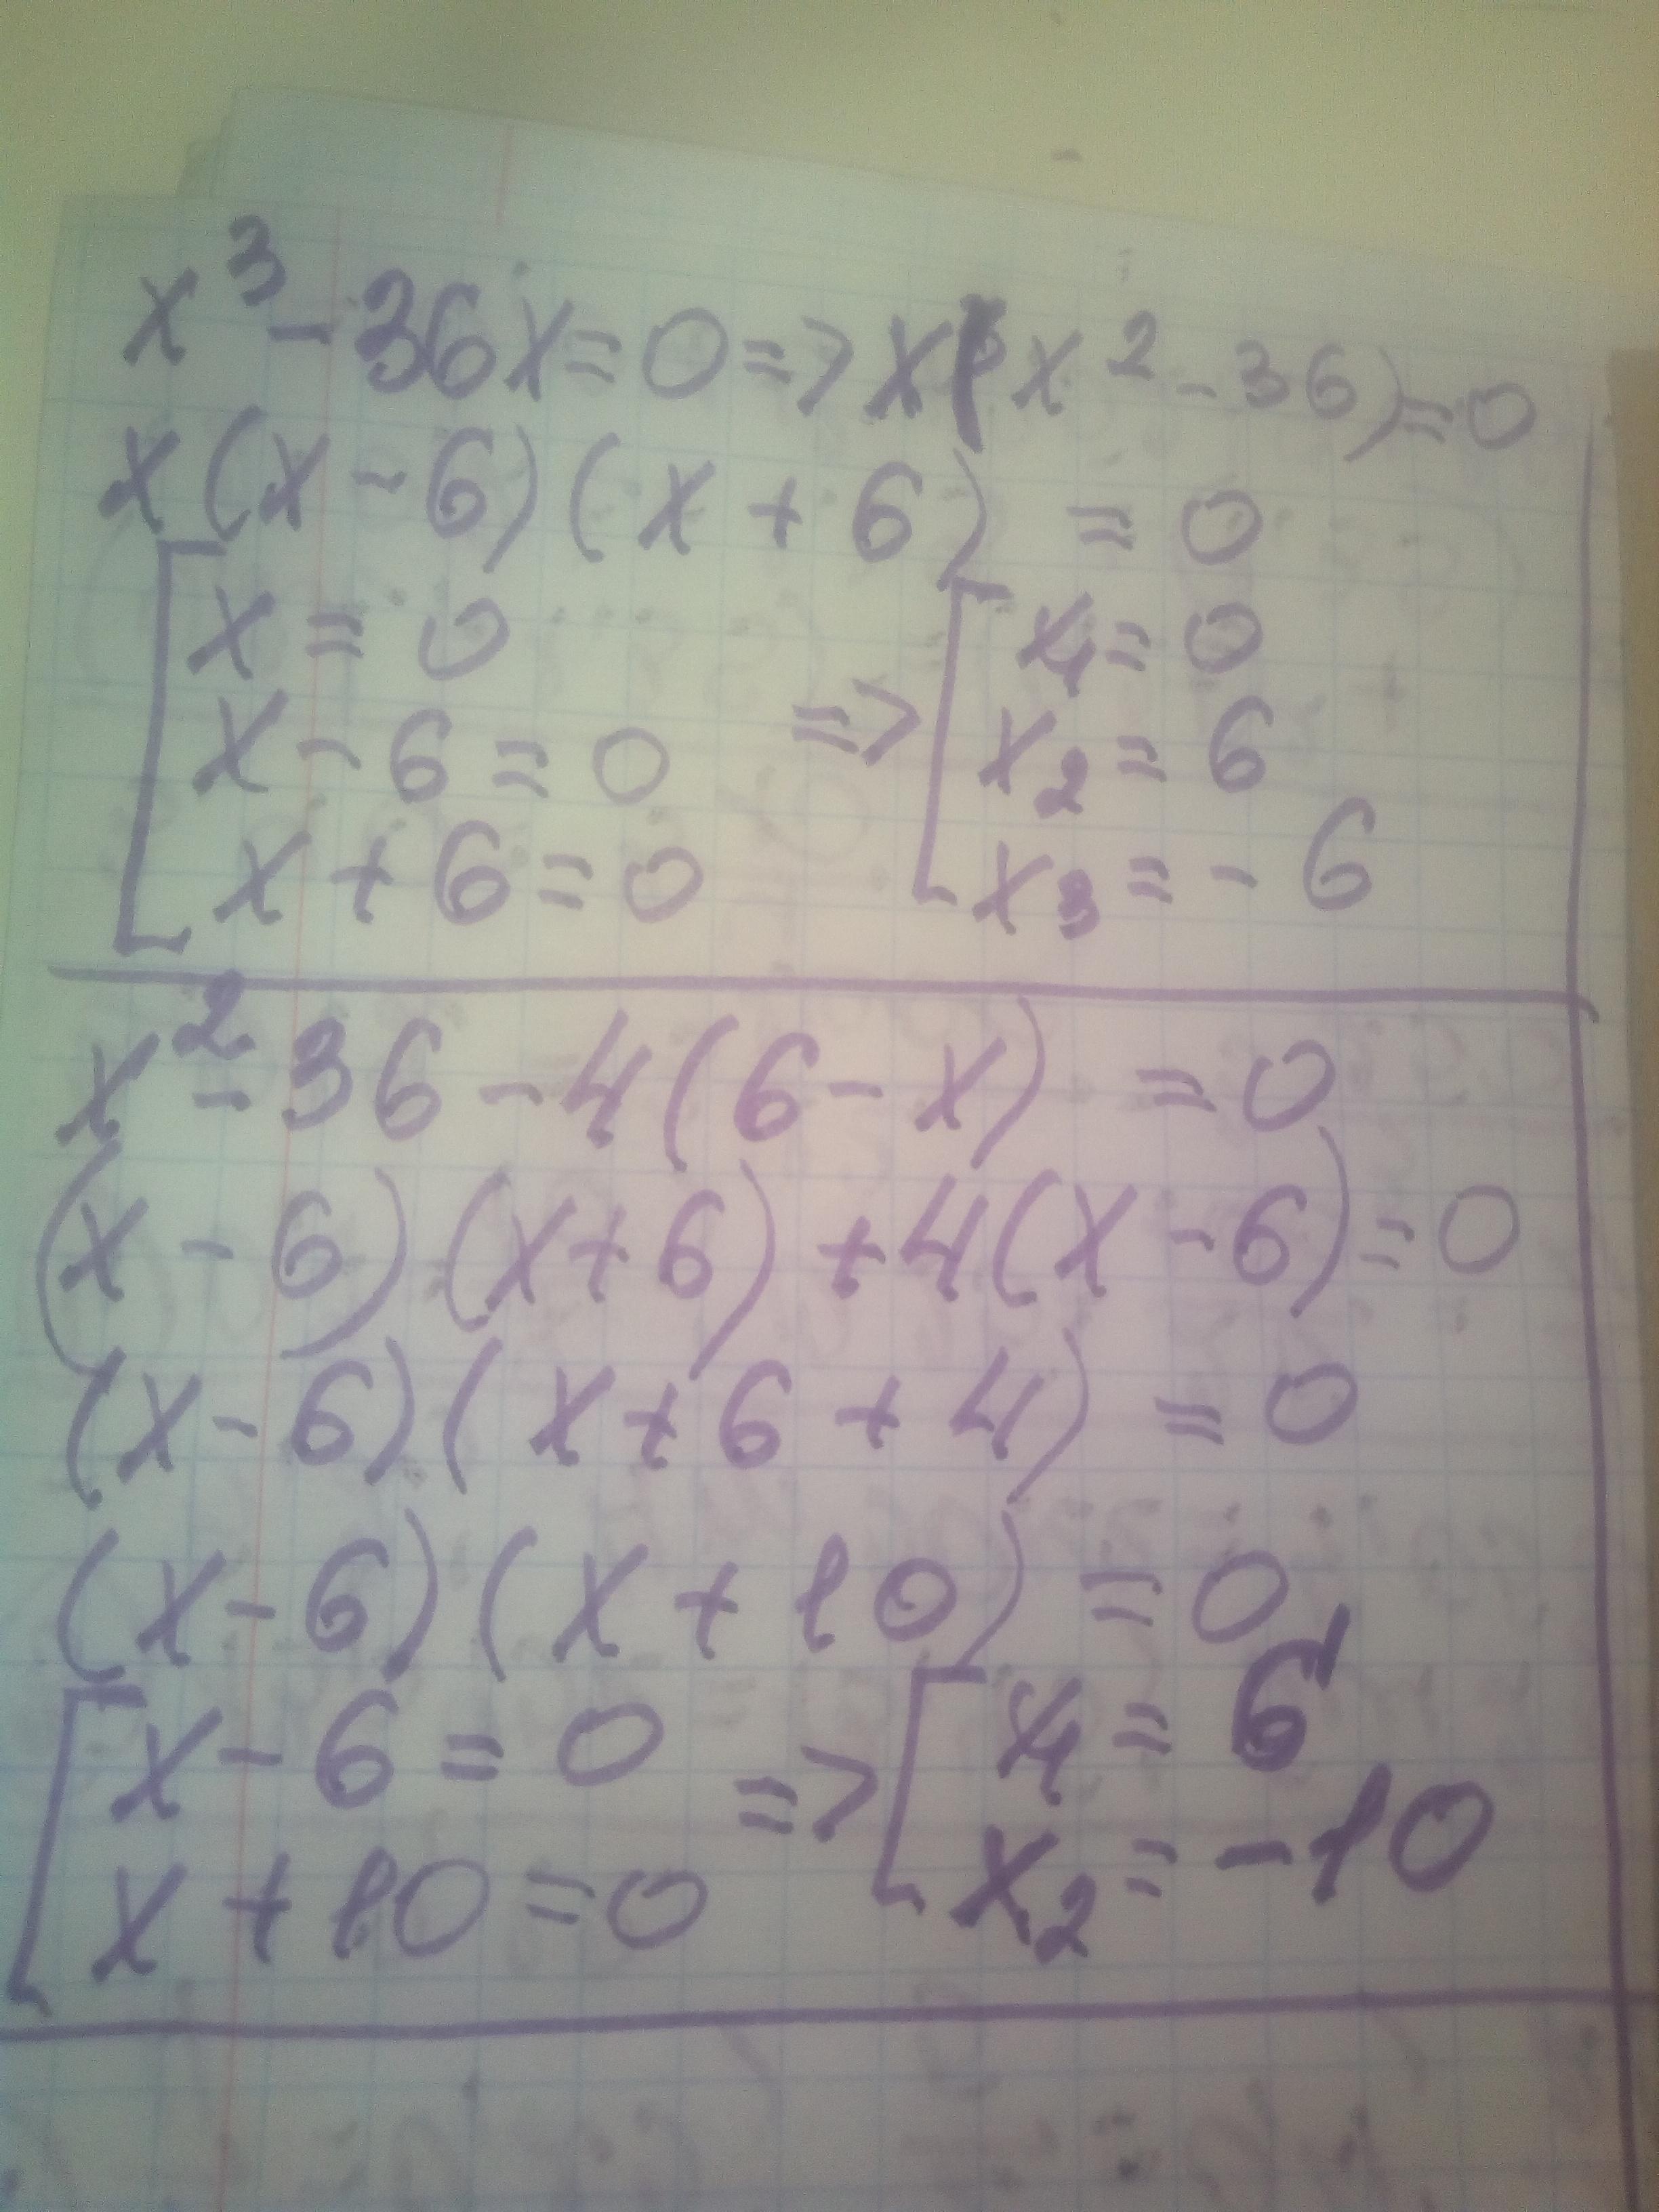 x³-36x=0=>x(x²-36)=0
x(x-6)(x+6)=0
[x=0
x-6=0
x+6=0
=>
[x₁=0
x₂=6
x₃=-6
x²-36-4(6-x)=0
(x-6)(x+6)+4(x-6)=0
(x-6)(x+6+4)=0
(x-6)(x+10)=0
[x-6=0
x+10=0
=>
[x₁=6
x₂=-10